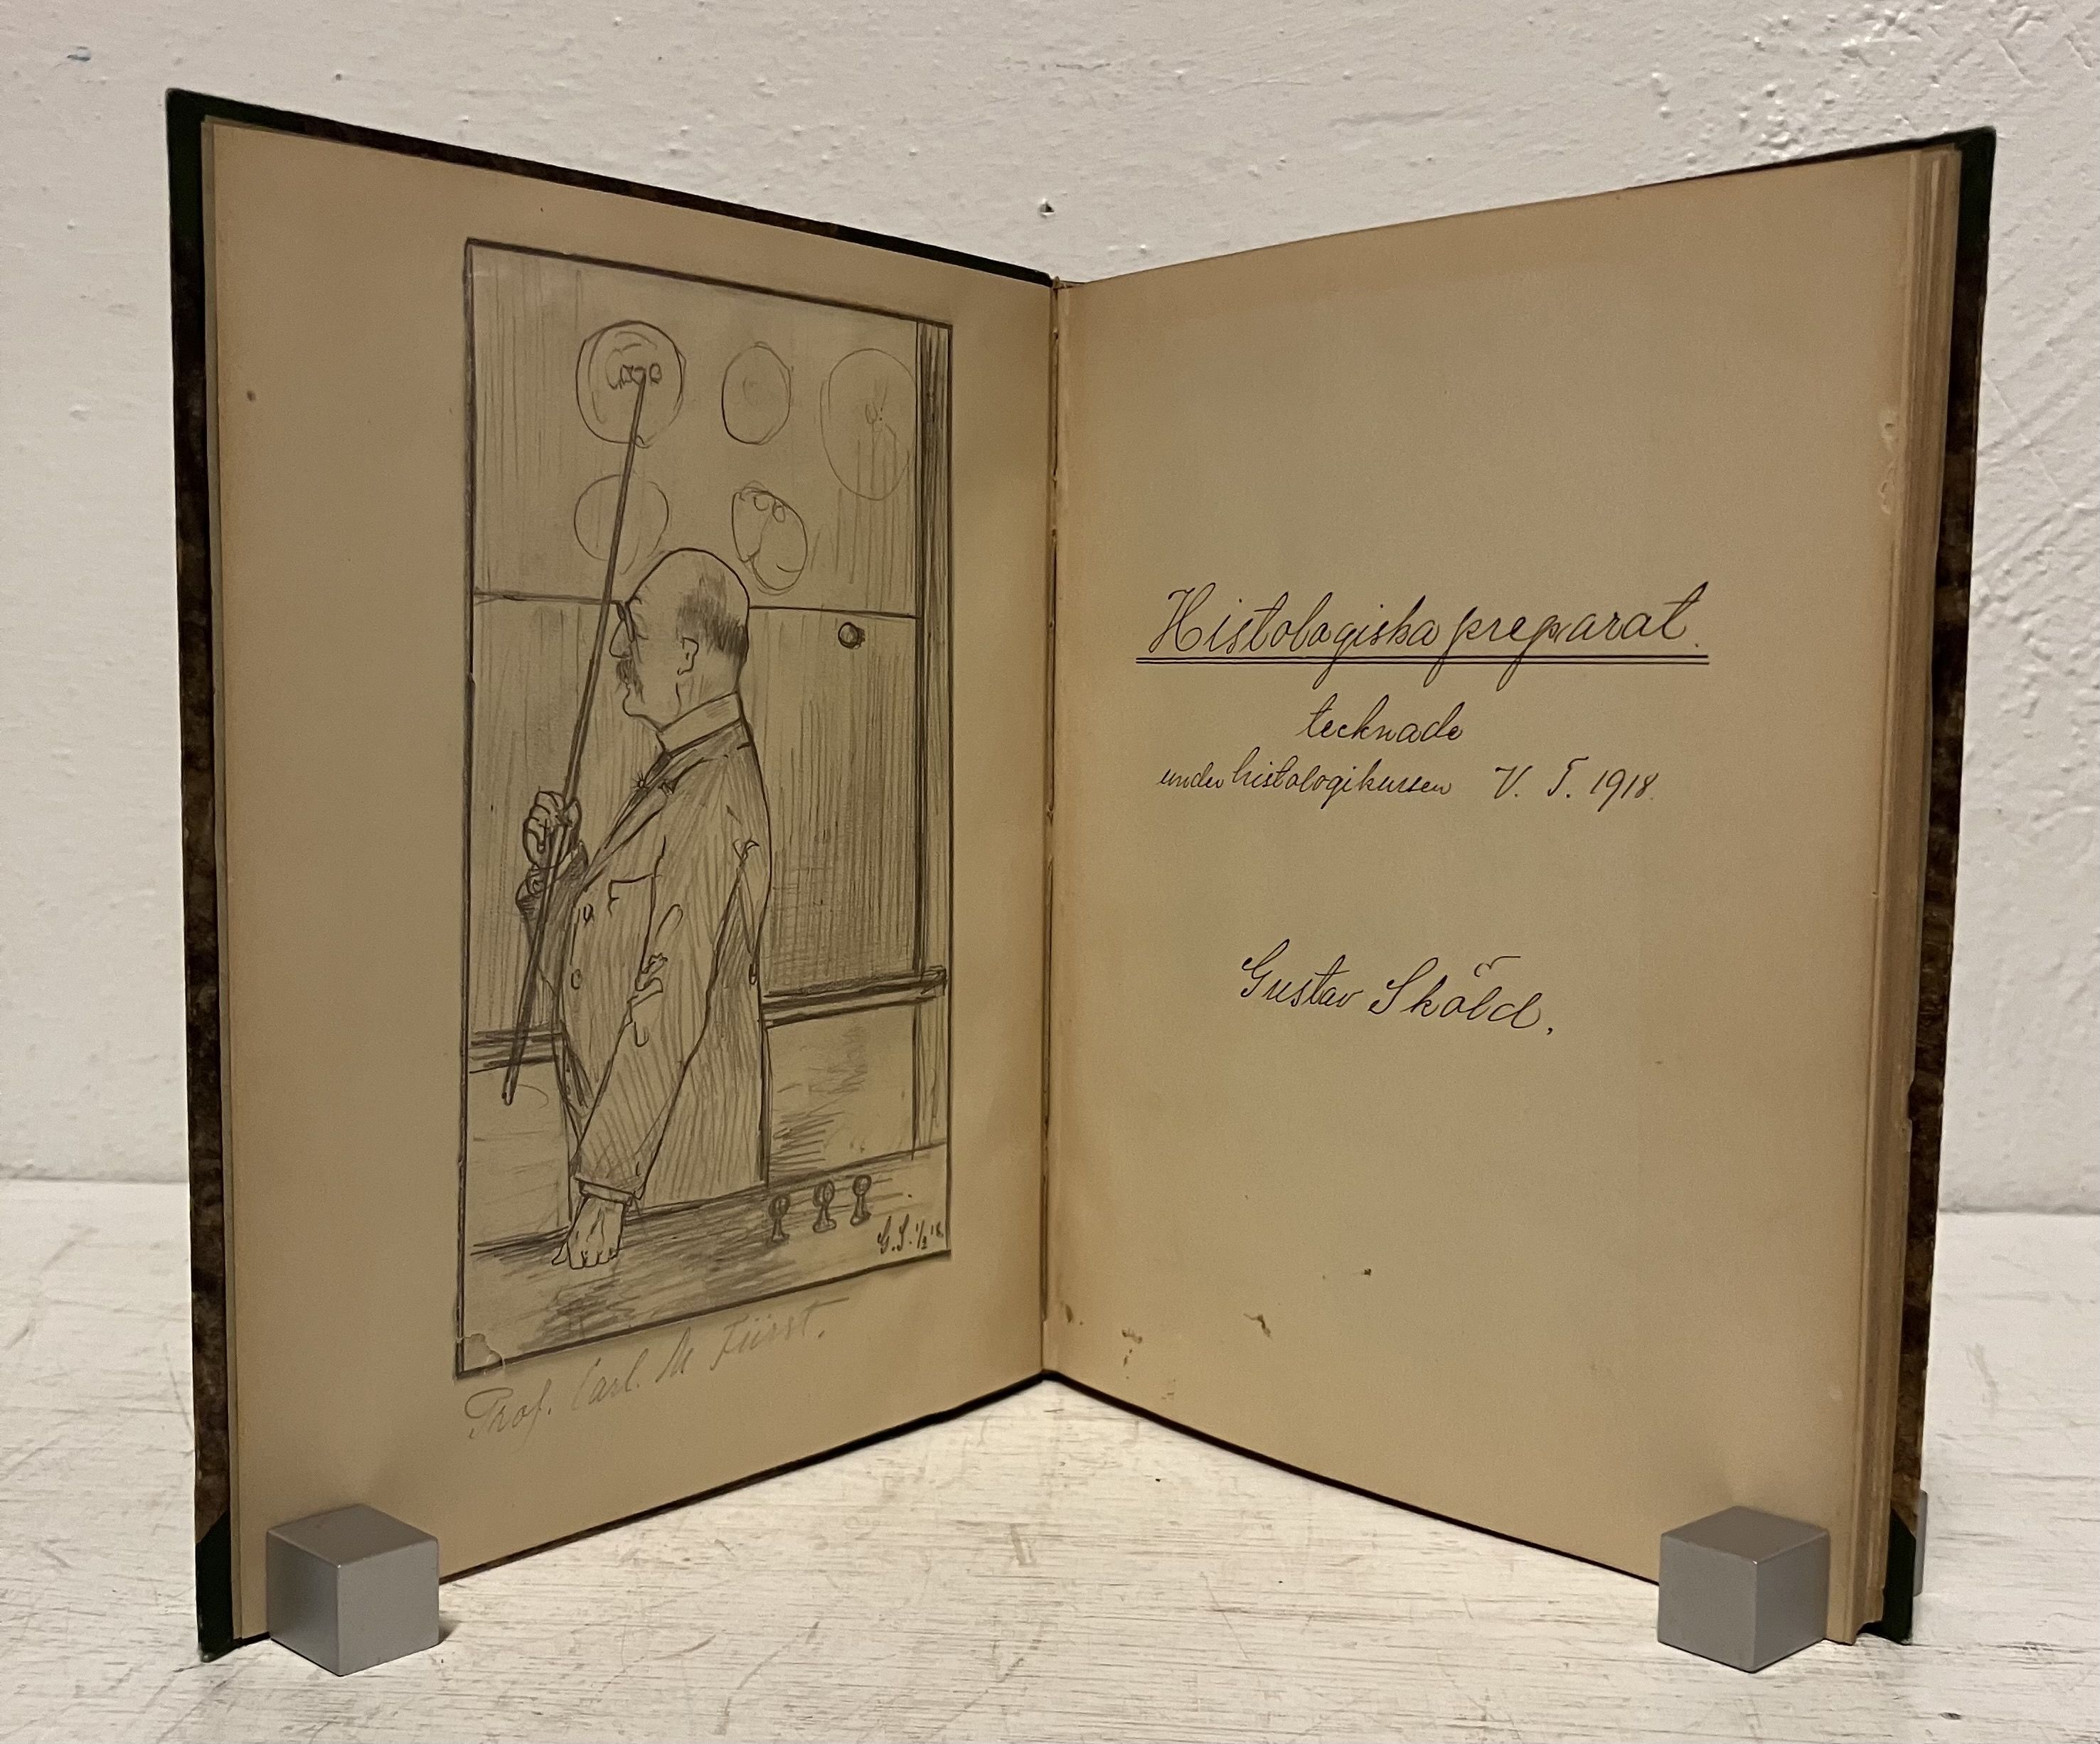 G. S. 1/3 18.
Prof. Carl. M Fürst.
Histologiska preparat.
tecknade
under histologikursen V. T. 1918.
Gustav Sköld.